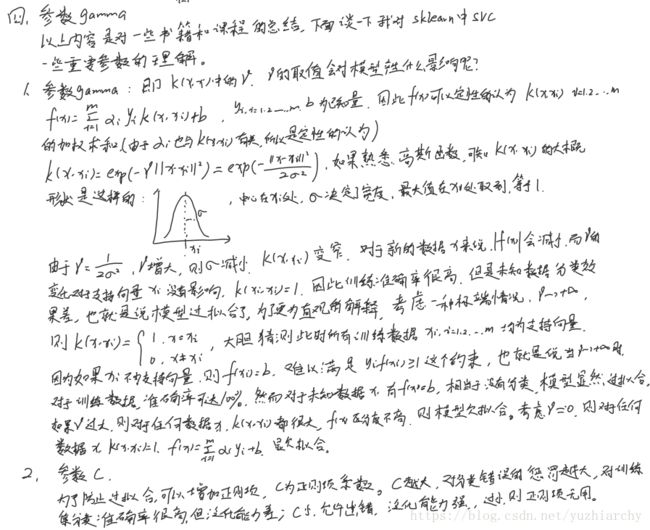 四、参数gamma
以上内容是对一些书籍和课程的总结，下面谈一下我对sklearn中SVC
一些重要参数的理解。
1. 参数gamma：即 K(x,xi)中的γ. γ的取值会对模型产生什么影响呢？
f(x)=∑ αi yi K(x,xi)+b , yi, i=1,2...m, b为常量. 因此f(x)可以定性的认为 K(x,xi) i=1,2...m
的加权求和(由于αi也与K(x,xi)有关, 所以是定性的认为)
K(x,xi)=exp(-γ||x-xi||²)=exp(-||x-xi||²/2σ²), 如果熟悉高斯函数, 可知K(x,xi)的大概
形状是这样的: σ xi , 中心在xi处, σ决定了宽度, 最大值在xi处取到, 等于1.
由于γ=1/2σ², γ增大, 则σ减小. K(x,xi)变窄. 对于新的数据x来说, |f(x)|会减小. 而γ的
变化对于支持向量xi没有影响, K(xi,xi)=1. 因此训练准确率很高. 但是未知数据分类效
果差, 也就是说模型过拟合了, 为了更为直观的解释, 考虑一种极端情况, γ→+∞,
则 K(x,xi)={1, x=xi 0, x≠xi , 大胆猜测此时所有训练数据xi, i=1,2...m 均为支持向量.
因为如果xi不为支持向量, 则f(xi)=b. 难以满足yif(xi)≥1这个约束, 也就是说当γ→+∞时,
对于训练数据, 准确率可达100%. 然而对于未知数据x, 有f(x)=b, 相当于没有分类, 模型显然过拟合.
如果γ过小, 则对于任何数据x, K(x,xi)都很大, f(x)区分度不高, 则模型欠拟合。考虑γ=0, 则对任何
数据x, K(x,xi)=1. f(x)=∑ αi yi+b. 显然欠拟合。
2. 参数C.
为了防止过拟合, 可以增加正则项, C为正则项系数。C越大, 对分类错误的惩罚越大, 对训练
集分类准确率很高, 但泛化能力差; C小, 允许出错, 泛化能力强, 过小则正则项无用.
https://blog.csdn.net/yuzhiarchy